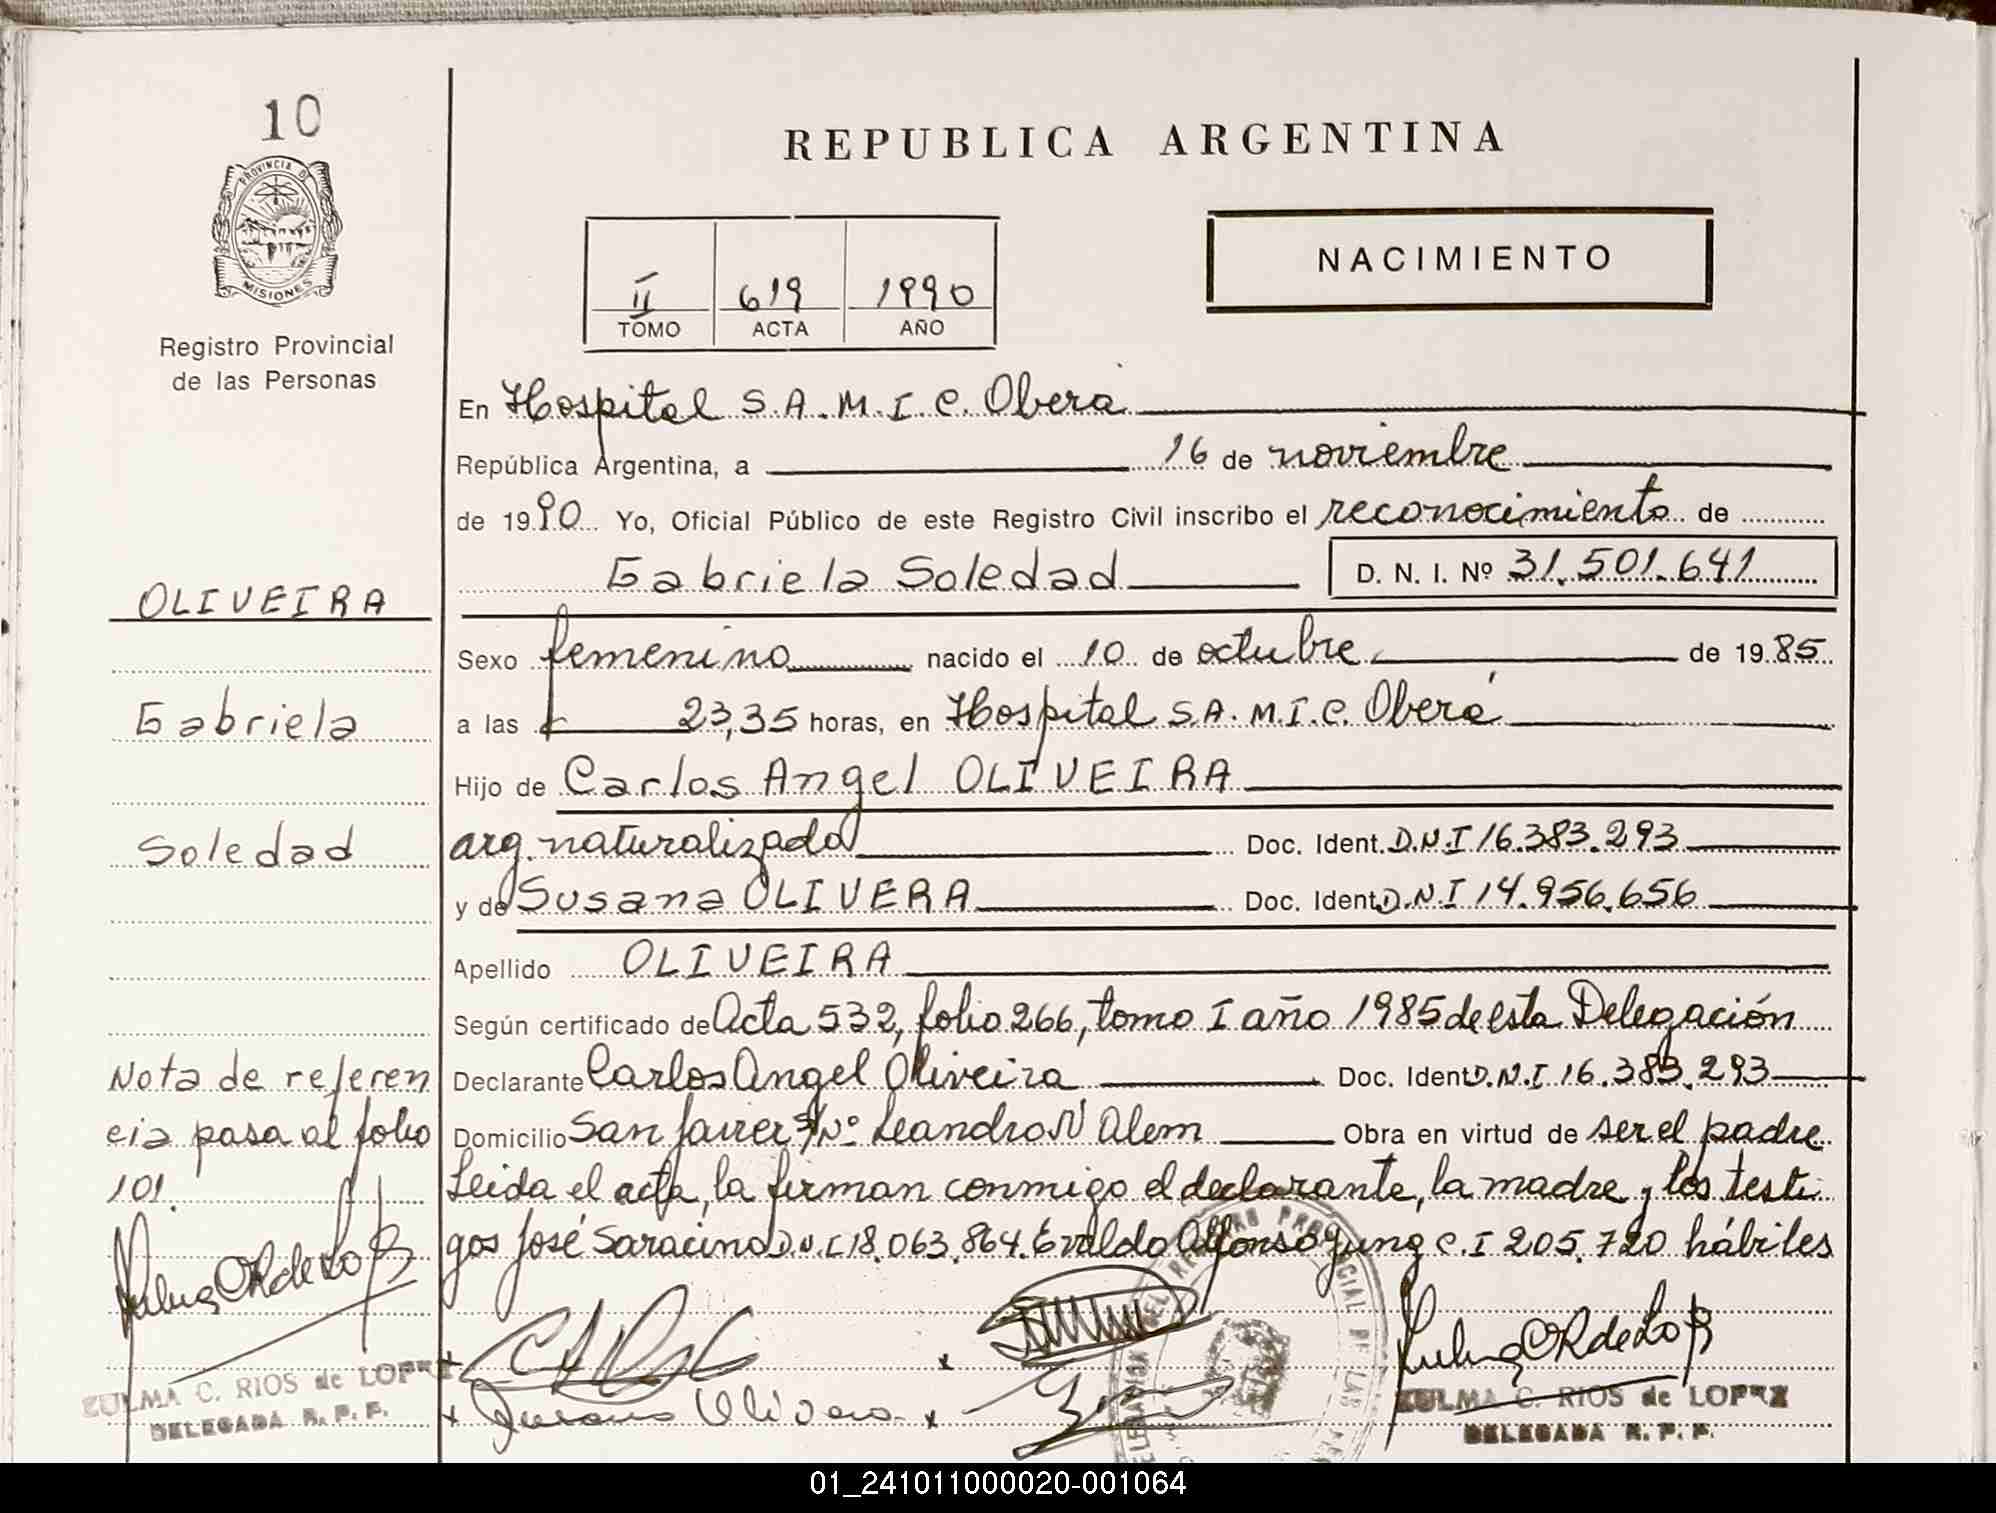 10
PROVINCIA D
MISIONES
Registro Provincial
de las Personas
OLIVEIRA
Gabriela
Soledad
Nota de referen
cia pasa al folio
101.
ZULMA C. RIOS de LOPEZ
DELEGADA R. P. P.
REPUBLICA ARGENTINA
II 619 1990
TOMO ACTA AÑO
NACIMIENTO
En Hospital S.A.M.I.C. Oberá
República Argentina, a 16 de noviembre
de 1990 Yo, Oficial Público de este Registro Civil inscribo el reconocimiento de
Gabriela Soledad D. N. I. Nº 31.501.641
Sexo femenino nacido el 10 de octubre de 1985
a las 23,35 horas, en Hospital S.A.M.I.C. Oberá
Hijo de Carlos Angel OLIVEIRA
arg. naturalizado Doc. Ident. D.N.I 16.383.293
y de Susana OLIVERA Doc. Ident. D.N.I 14.956.656
Apellido OLIVEIRA
Según certificado de Acta 532, folio 266, tomo I año 1985 de esta Delegación
Declarante Carlos Angel Oliveira Doc. Ident. D.N.I 16.383.293
Domicilio San Javier S/Nº Leandro N Alem Obra en virtud de ser el padre
Leida el acta, la firman conmigo el declarante, la madre y los testi
gos José Saracino D.N.I 18.063.864. Evaldo Alfonso Jung C.I 205.720 hábiles
Susana Olivera
ZULMA C. RIOS de LOPEZ
DELEGADA R. P. P.
01_241011000020-001064